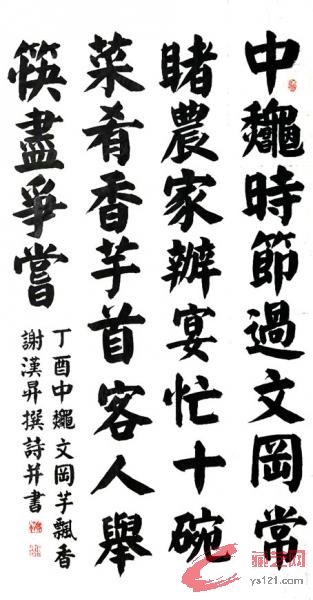 中龝時節過文岡常
睹農家辦宴忙十碗
菜肴香芋首客人舉
筷盡爭嘗
丁酉中龝文岡芋飄香
謝漢昇撰詩并書
ys121.com